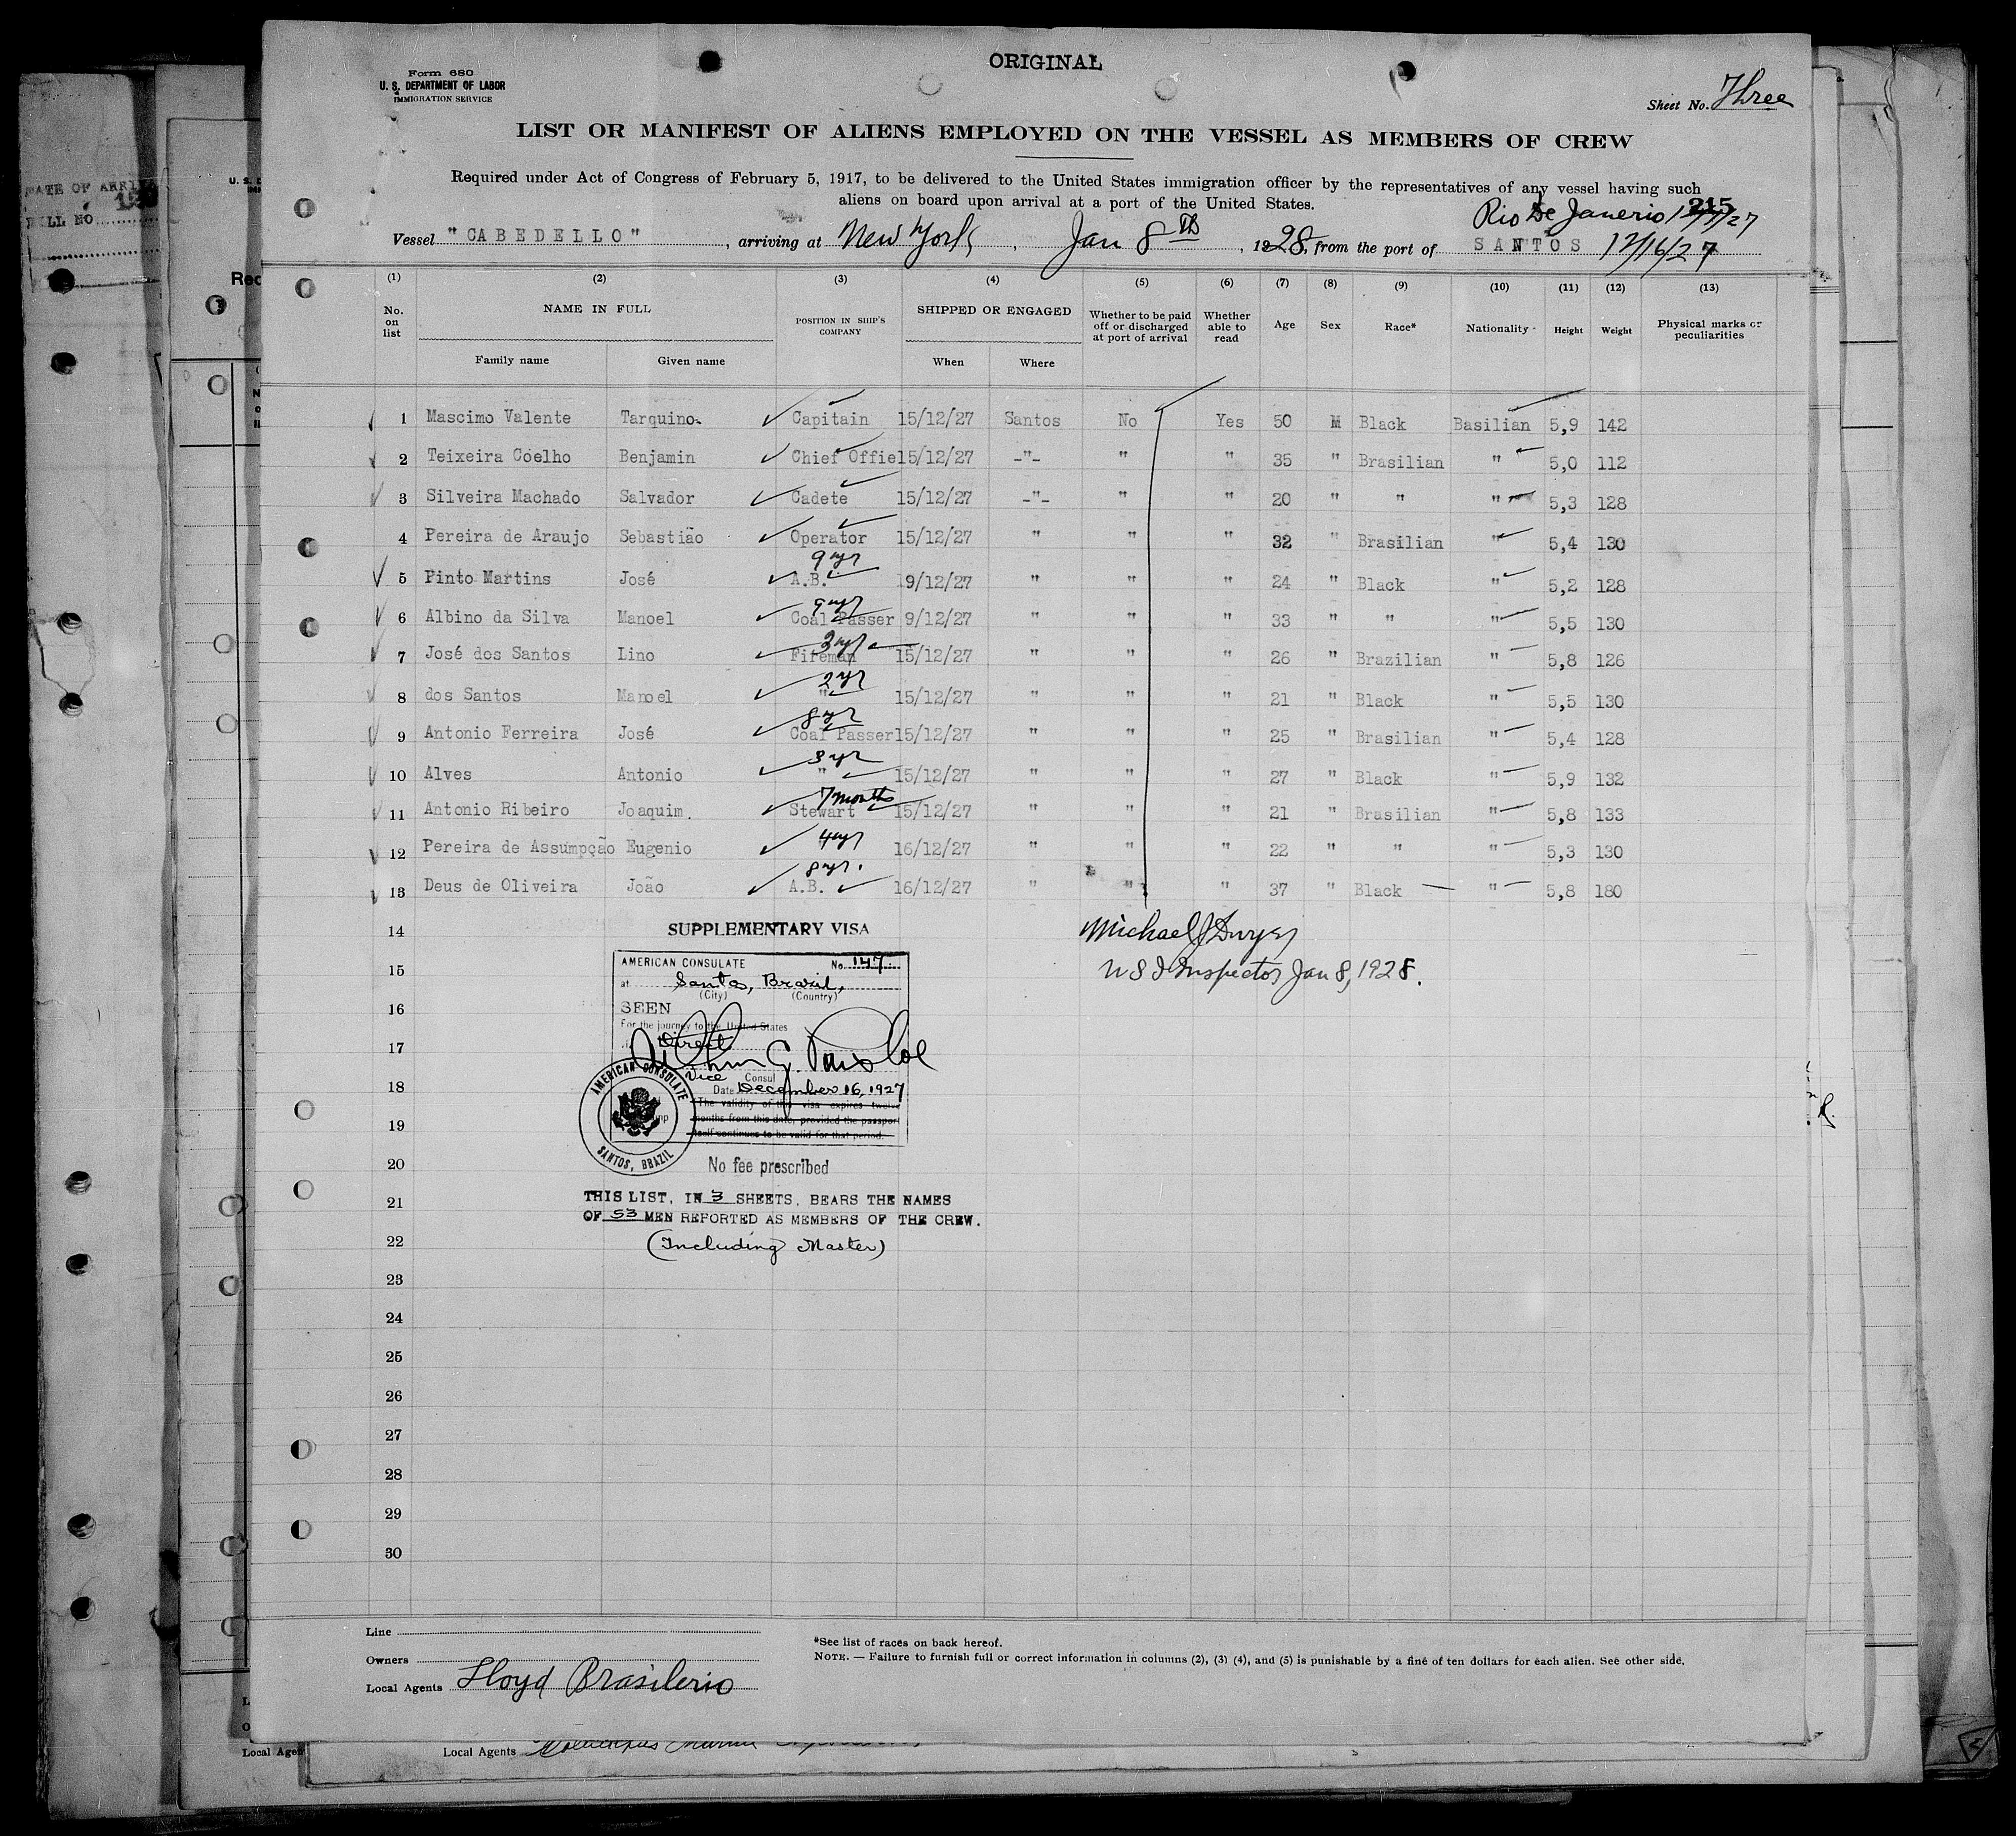 ORIGINAL
Form 680
U. S. DEPARTMENT OF LABOR
IMMIGRATION SERVICE
Sheet No. Three
LIST OR MANIFEST OF ALIENS EMPLOYED ON THE VESSEL AS MEMBERS OF CREW
Required under Act of Congress of February 5, 1917, to be delivered to the United States immigration officer by the representatives of any vessel having such
aliens on board upon arrival at a port of the United States.
215
Rio De Janerio
Vessel "CABEDELLO", arriving at New York, Jan 8th, 1928, from the port of SANTOS 12/16/27
(1) (2) (3) (4) (5) (6) (7) (8) (9) (10) (11) (12) (13)
No. on list NAME IN FULL POSITION IN SHIP'S COMPANY SHIPPED OR ENGAGED Whether to be paid off or discharged at port of arrival Whether able to read Age Sex Race* Nationality Height Weight Physical marks or peculiarities
Family name Given name When Where
1 Mascimo Valente Tarquino Capitain 15/12/27 Santos No Yes 50 M Black Basilian 5,9 142
2 Teixeira Coelho Benjamin Chief Offie 15/12/27 -"- " " 35 " Brasilian " 5,0 112
3 Silveira Machado Salvador Cadete 15/12/27 -"- " " 20 " " " 5,3 128
4 Pereira de Araujo Sebastião Operator 15/12/27 " " " 32 " Brasilian " 5,4 130
9 yr
5 Pinto Martins José A.B. 19/12/27 " " " 24 " Black " 5,2 128
9 yr
6 Albino da Silva Manoel Coal Passer 9/12/27 " " " 33 " " " 5,5 130
3 yr
7 José dos Santos Lino Fireman 15/12/27 " " " 26 " Brazilian " 5,8 126
2 yr
8 dos Santos Manoel " 15/12/27 " " " 21 " Black " 5,5 130
8 yr
9 Antonio Ferreira José Coal Passer 15/12/27 " " " 25 " Brasilian " 5,4 128
3 yr
10 Alves Antonio " 15/12/27 " " " 27 " Black " 5,9 132
7 months
11 Antonio Ribeiro Joaquim. Stewart 15/12/27 " " " 21 " Brasilian " 5,8 133
12 Pereira de Assumpção Eugenio 4 yr 16/12/27 " " " 22 " " " 5,3 130
8 yr.
13 Deus de Oliveira João A.B. 16/12/27 " " " 37 " Black " 5,8 180
14
15
16
17
18
19
20
21
22
23
24
25
26
27
28
29
30
Michael J Dwyer
U S I Inspector Jan 8, 1928.
SUPPLEMENTARY VISA
AMERICAN CONSULATE No. 147
at Santos, Brazil,
(City) (Country)
SEEN
For the journey to the United States
Direct
Vice Consul
Date December 16, 1927
The validity of this visa expires twelve
months from this date, provided the passport
itself continues to be valid for that period.
AMERICAN CONSULATE
SANTOS, BRAZIL
No fee prescribed
THIS LIST, IN 3 SHEETS, BEARS THE NAMES
OF 53 MEN REPORTED AS MEMBERS OF THE CREW.
(Including Master)
Line
Owners
Local Agents Lloyd Brasilerio
*See list of races on back hereof.
NOTE. — Failure to furnish full or correct information in columns (2), (3) (4), and (5) is punishable by a fine of ten dollars for each alien. See other side.
Local Agents